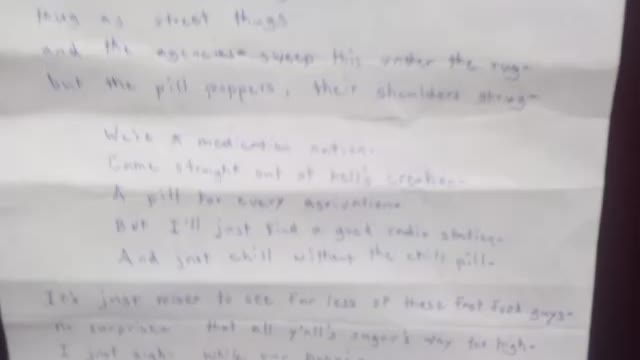 thug as street thugs
and the agencies sweep this under the rug-
but the pill poppers, their shoulders shrug-
We're a medication nation-
Came straight out of hell's creation-
A pill for every
But I'll just find a good radio station-
And just chill without the chill pill-
It's just to see far less of these fast food guys-
no surprise that all y'all's sugar's way too high-
I just sigh while our